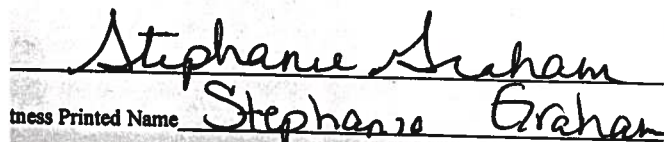 Stephanie Graham
tness Printed Name Stephanie Graham